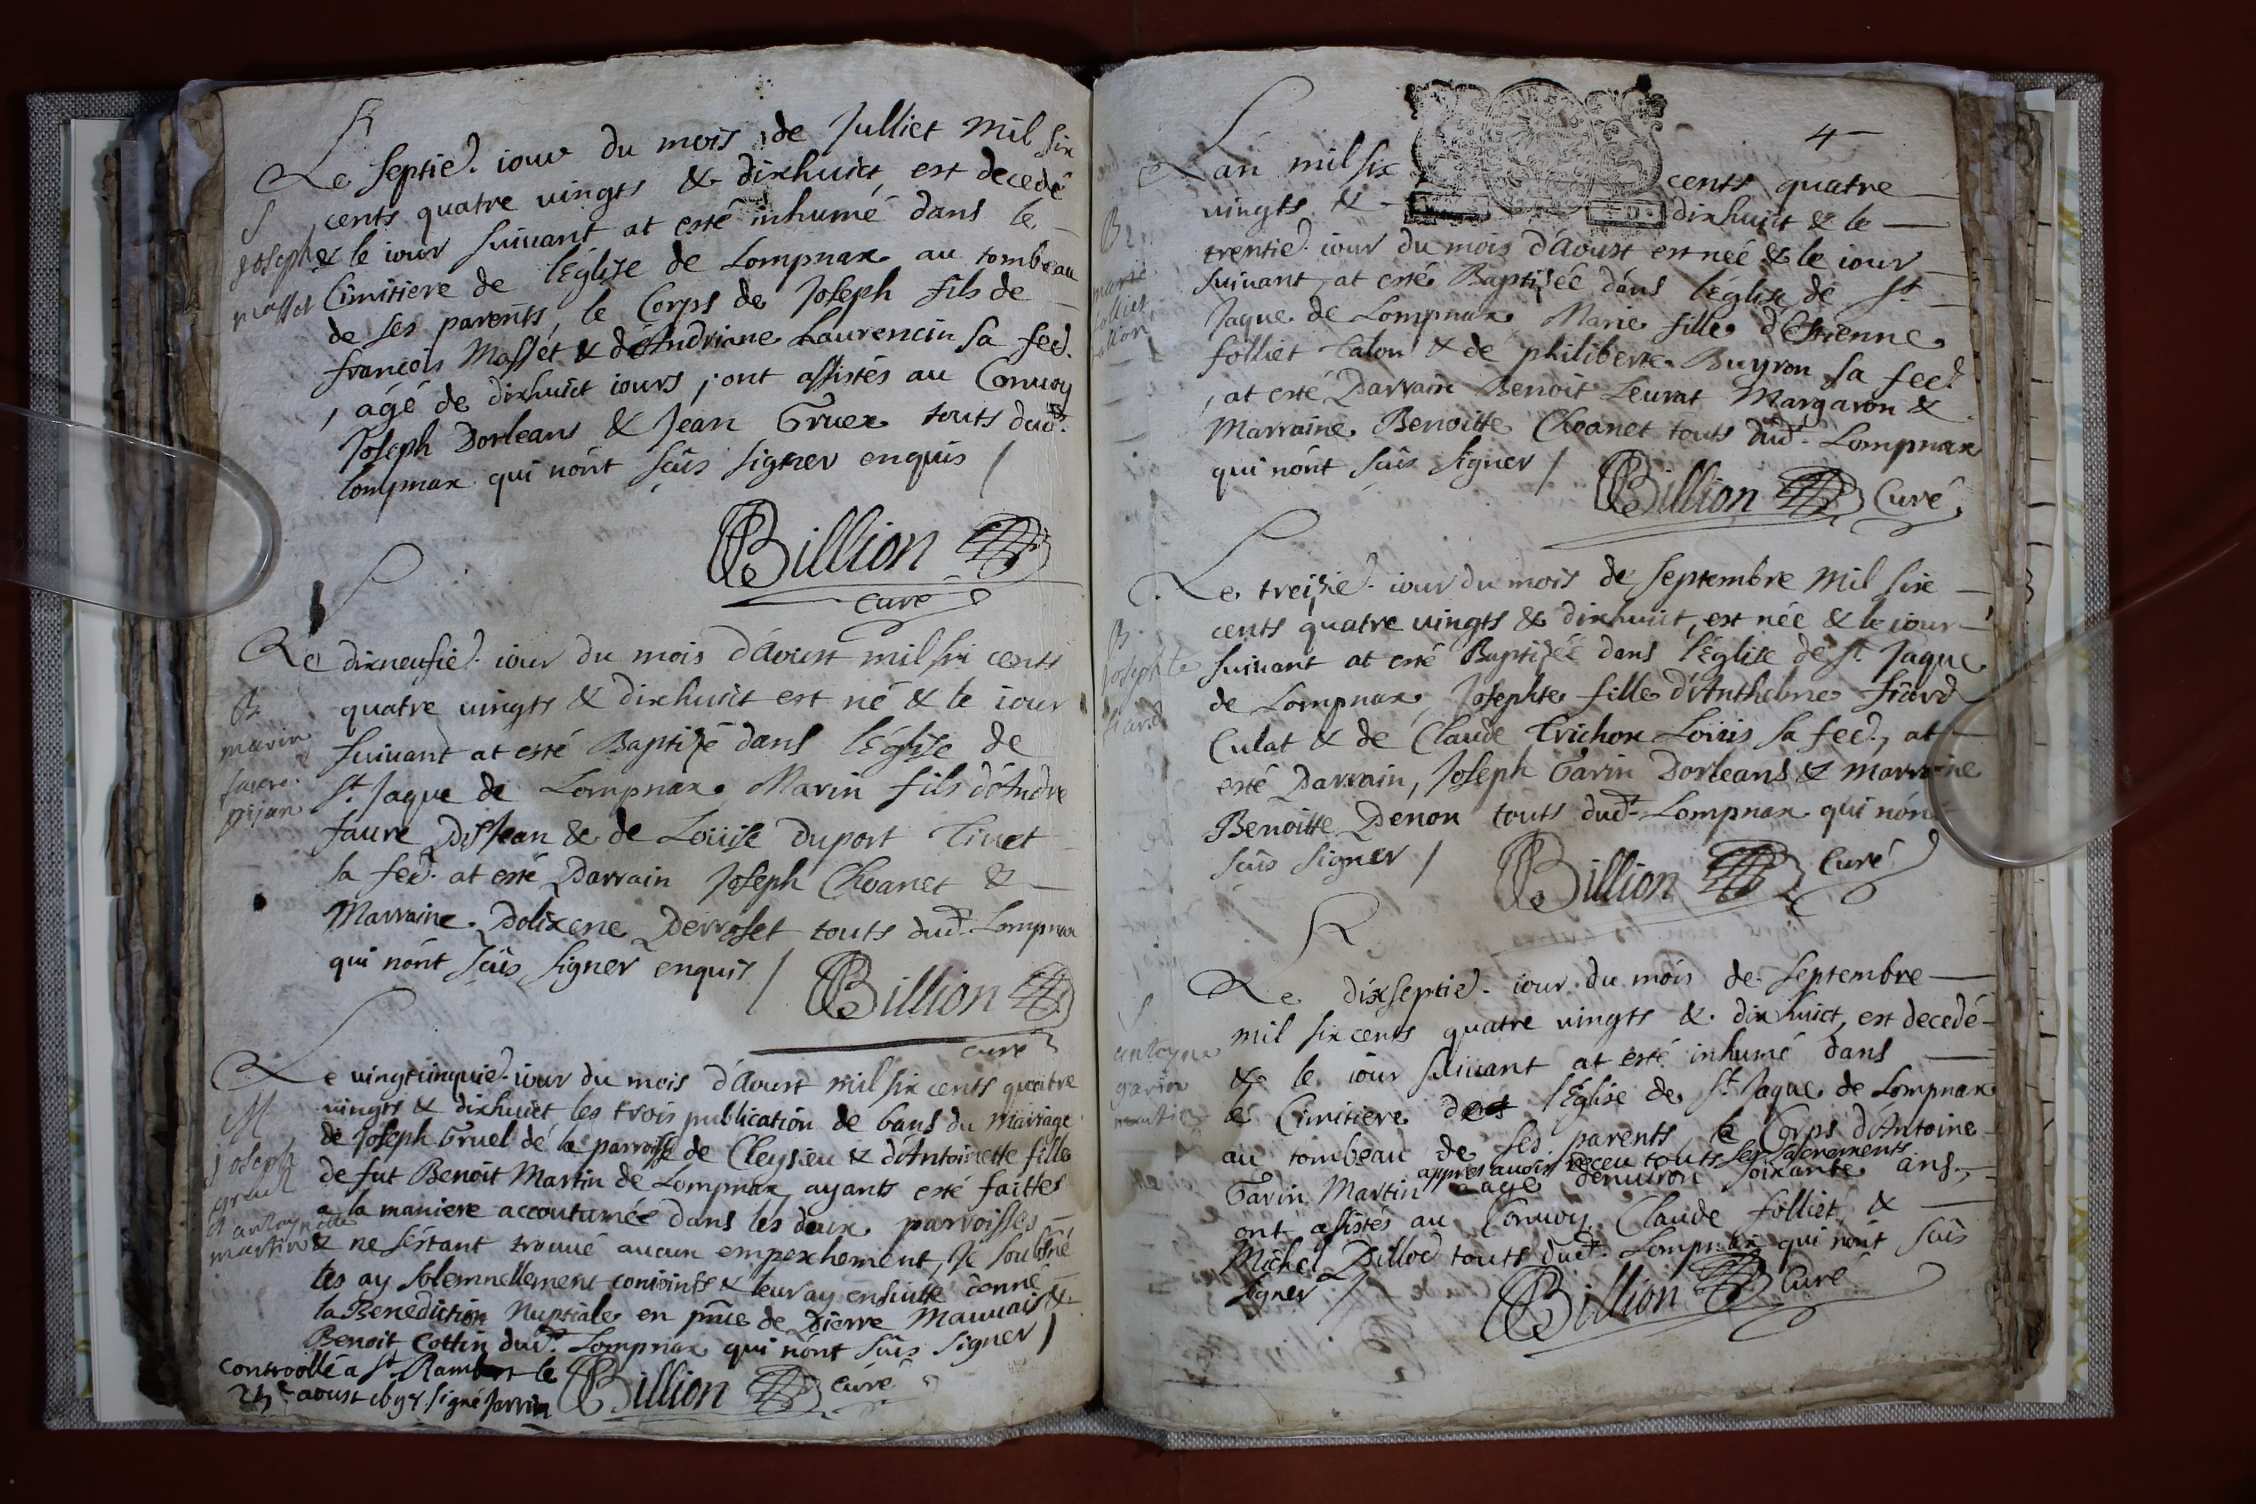 Le septie. iour du mois de Julliet mil six
cents quatre vingts & dixhuict est decedé
& le iour suivant at esté inhumé dans le
Cimitiere de l'Eglise de Lompnax au tombeau
de ses parents, le Corps de Joseph fils de
françois Masset & d'Andriane Laurencin sa fee.
, agé de dixhuict iours, ont assistés au Convoy
Joseph Dorleans & Jean Gruex touts dud.
lompnax qui nónt sçus signer enquis /
S
joseph
masset
Billion
curé
Le dixneufie. iour du mois d'Aoust mil six cents
quatre vingts & dixhuict est né & le iour
suivant at esté Baptizé dans l'Eglize de
St. Jaque de Lompnax Marin fils d'Andre
faure Pisjean & de Louise Duport Tinet
sa fee. at esté Parrain Joseph Choanet &
Marraine Polixene Perroset touts dud. Lompnax
qui nónt sçus signer enquis /
B
marin
faure
pijan
Billion
curé
Le vingtcinquie. iour du mois d'Aoust mil six cents quatre
vingts & dixhuict les trois publication de bans du Mariage
de Joseph Gruel de la parroisse de Cleysieu & d'Antoinette fille
de fut Benoit Martin de Lompnax, ayants esté faittes
a la maniere accoutumée dans les deux parroisses
& ne s'estant trouvé aucun empexhement, Je soubsné
les ay solemnellement conioints & leur ay ensuitte donné
la Benediction Nuptiale en pnce de Pierre Mauvais &
Benoit Cottin dud. Lompnax qui nont sçus signer /
M
joseph
gruel
& antoynette
martin
controollé a St. Rambert le
25e aoust 1698 signé Jarrin
Billion curé
4
L'an mil six cents quatre
vingts & dixhuict & le
trentie. iour du mois d'Aoust est née & le iour
suivant, at esté Baptizée dans l'église de St.
Jaque de Lompnax Marie fille d'Estienne
folliet Talon & de philiberte Buyron sa fee.
, at esté Parrain Benoit Leurat Margaron &
Marraine Benoitte Choanet touts dud. Lompnax
qui nónt sçus signer /
B
marie
folliet
Billion Curé
Le treizie. iour du mois de septembre mil six
cents quatre vingts & dixhuict, est née & le iour
suivant at esté Baptizée dans l'Eglise de St. Jaque
de Lompnax, Josephte fille d'Anthelme fiard
Culat & de Claude Trichon Loüis sa fee., at
esté Parrain, Joseph Garin Dorleans & marraine
Benoitte Penon touts dud. Lompnax qui nónt
sçus signer /
B
josephte
fiard
Billion Curé
Le dixseptie. iour du mois de septembre
mil six cents quatre vingts & dixhuict, est decedé
& le iour suivant at esté inhumé dans
le Cimitiere de l'Eglise de St. Jaque de Lompnax
au tombeau de ses parents, le Corps d'Antoine
appres avoir receu touts ses sacrements
Garin Martin agé denviron soixante ans,
ont assistés au Convoy Claude folliet &
Michel Pillod touts dud. Lompnax qui nónt sçus
signer /
S
antoyne
garin
martin
Billion Curé